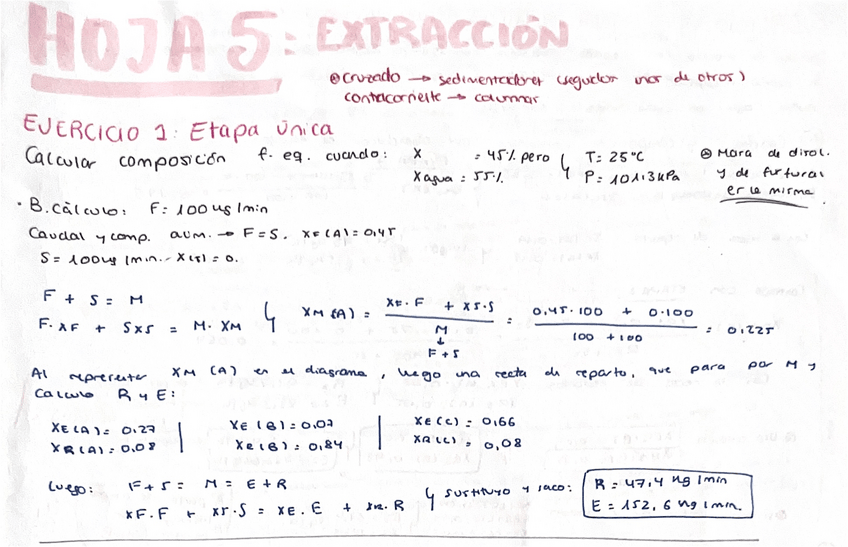 HOJA 5: EXTRACCIÓN
⊙ Cruzado → sedimentadores (seguidos unos de otros)
contracorriente → columnas
EJERCICIO 1: Etapa única
Calcular composición f. eq. cuando: X = 45% pero T: 25°C ⊙ Masa de disol.
Xagua = 55% P = 101,3 kPa y de furfural
es la misma
· B. Cálculo: F = 100 kg/min
Caudal y comp. alim. → F = S. XF(A) = 0,45
S = 100 kg/min. - X(S) = 0.
F + S = M
F·XF + SXS = M·XM XM(A) = XF·F + XS·S / M = 0,45·100 + 0·100 / 100 + 100 = 0,225
↓
F+S
Al representar XM(A) en el diagrama, luego una recta de reparto, que pasa por M y
calculo R y E:
XE(A) = 0,27 | XE(B) = 0,07 | XE(C) = 0,66
XR(A) = 0,08 | XR(B) = 0,84 | XR(C) = 0,08
Luego: F + S = M = E + R
XF·F + XS·S = XE·E + XR·R sustituyo y saco: R = 47,4 kg/min
E = 152,6 kg/min.